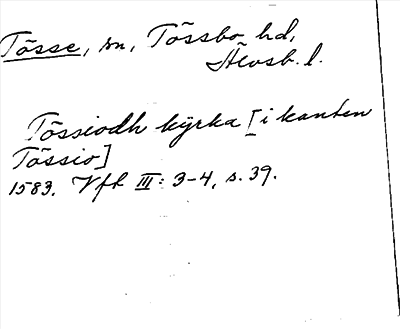 Tössе, sn, Tössbo hd,
Älvsb. l.
Tössiodh kyrka [i kanten
Tössio]
1583. Vfh III: 3-4, s. 39.